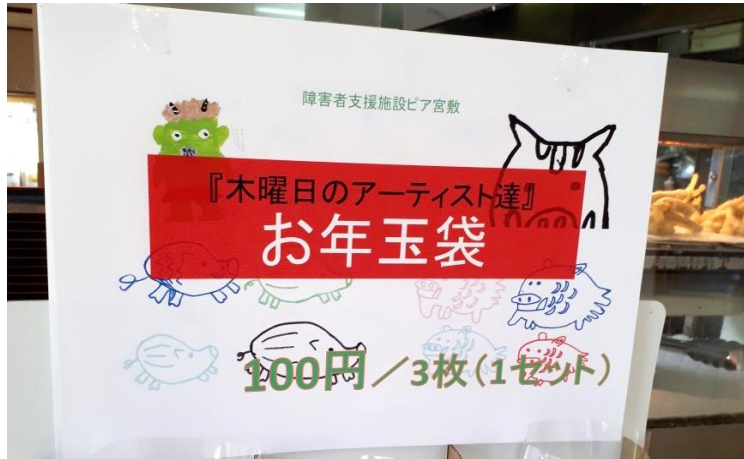 障害者支援施設ピア宮敷
『木曜日のアーティスト達』
お年玉袋
100円／3枚(1セット)